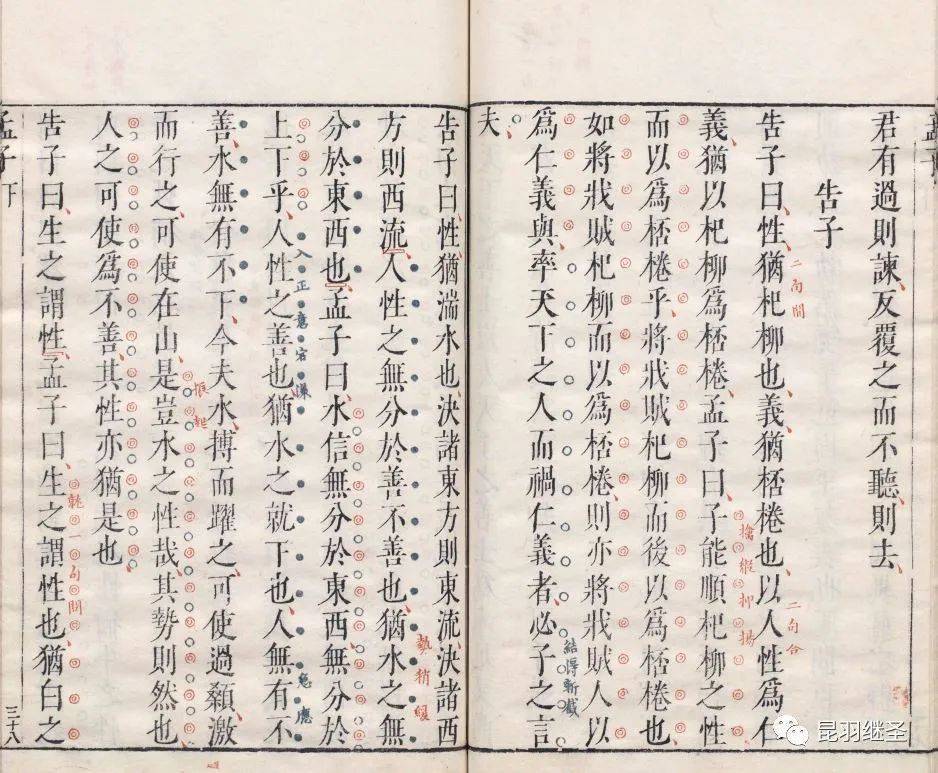 君有過則諫反覆之而不聽則去
告子
告子曰性猶杞柳也義猶桮棬也以人性爲仁
義猶以杞柳爲桮棬孟子曰子能順杞柳之性
而以爲桮棬乎將戕賊杞柳而後以爲桮棬也
如將戕賊杞柳而以爲桮棬則亦將戕賊人以
爲仁義與率天下之人而禍仁義者必子之言
夫
二句開
二句合
擒縱抑揚
結得斬截
告子曰性猶湍水也決諸東方則東流決諸西
方則西流人性之無分於善不善也猶水之無
分於東西也孟子曰水信無分於東西無分於
上下乎人性之善也猶水之就下也人無有不
善水無有不下今夫水搏而躍之可使過顙激
而行之可使在山是豈水之性哉其勢則然也
人之可使爲不善其性亦猶是也
告子曰生之謂性孟子曰生之謂性也猶白之
勢稍緩
入正意
急應
一句
孟子下
三十八
昆羽继圣